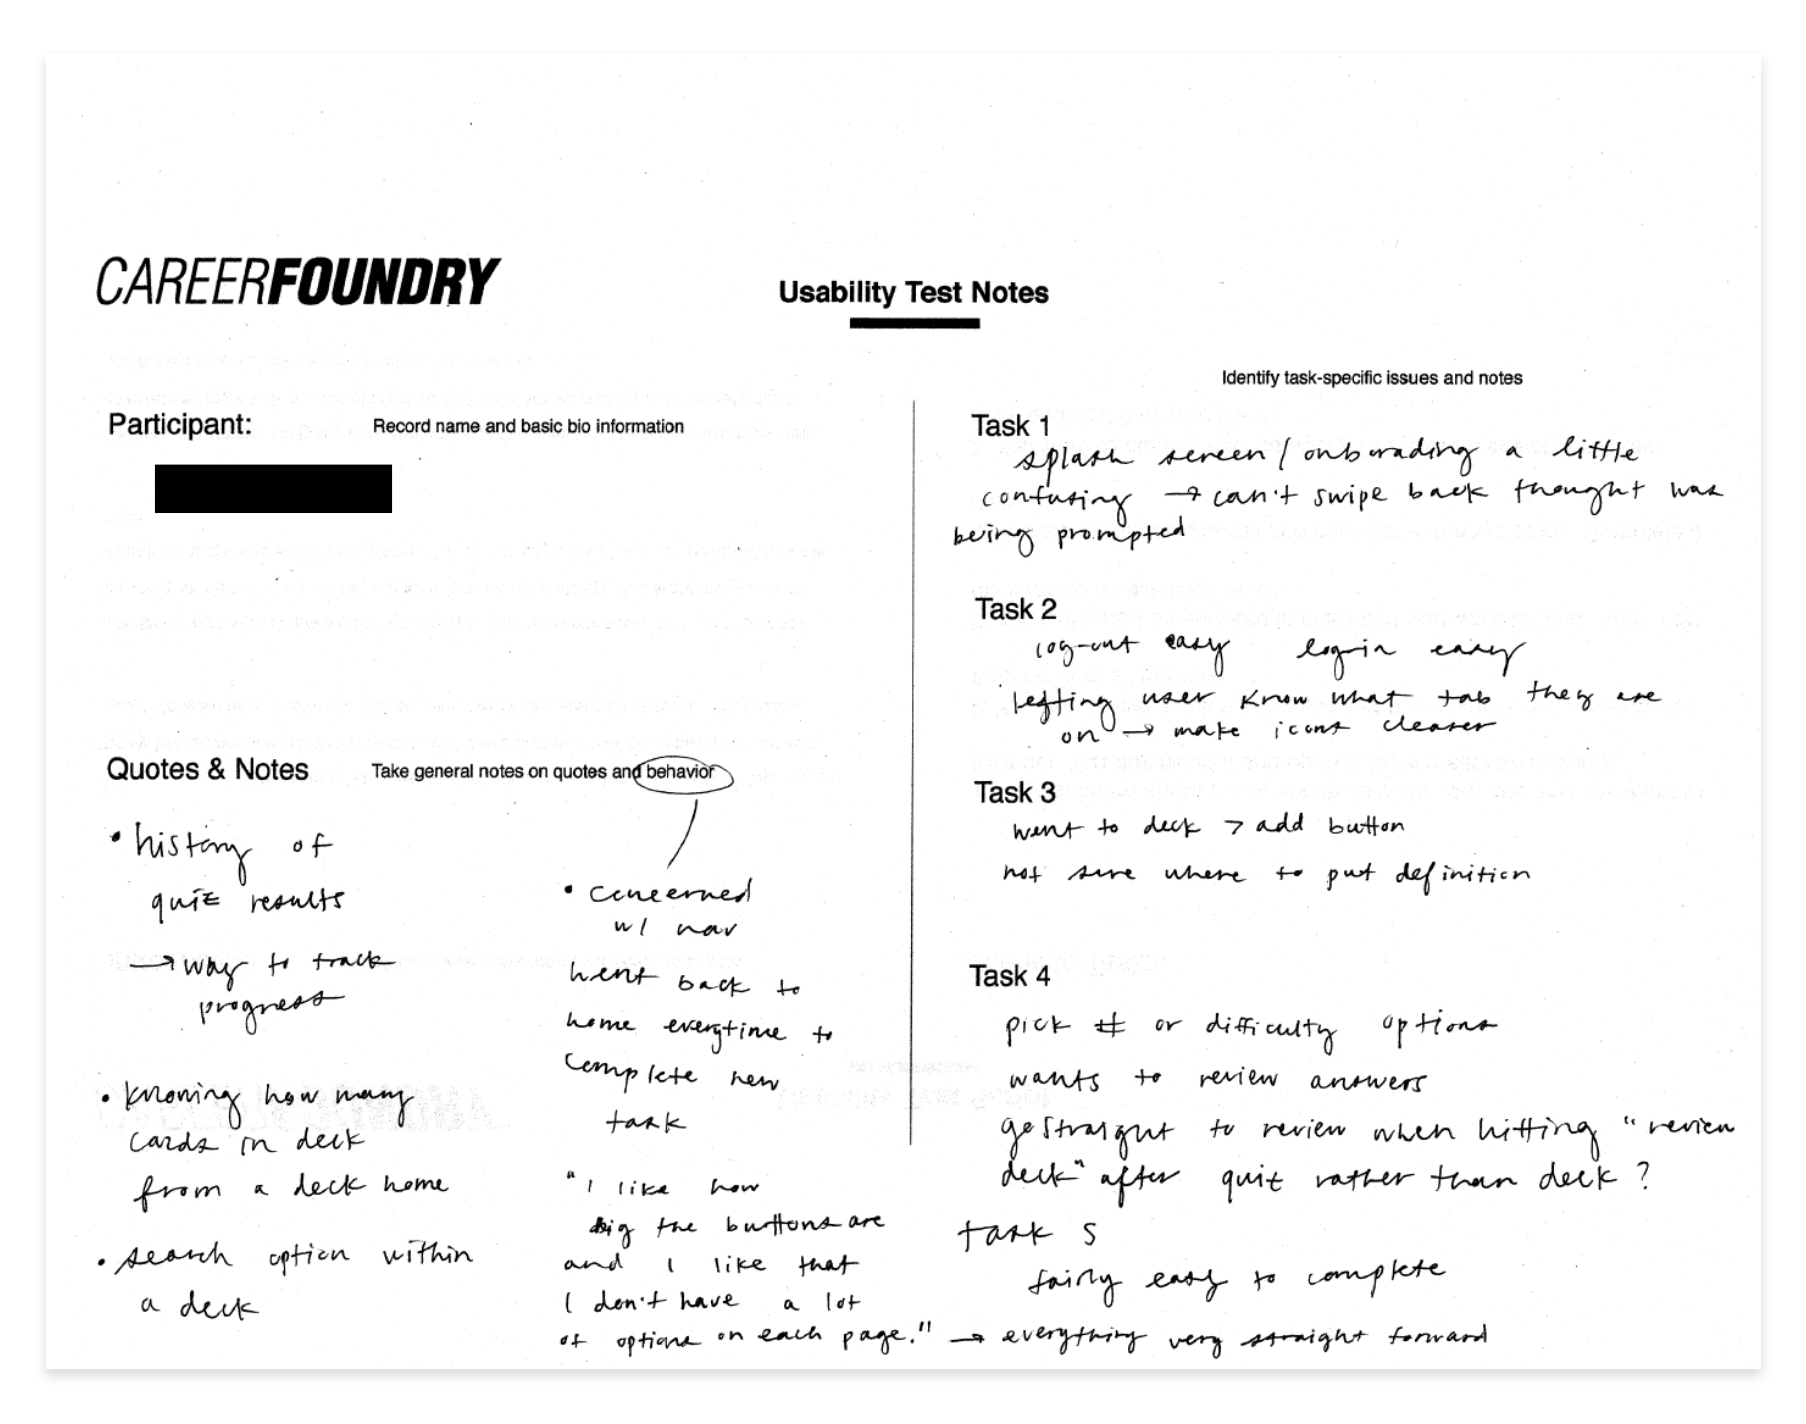 CAREERFOUNDRY
Usability Test Notes
Identify task-specific issues and notes
Participant:
Record name and basic bio information
Quotes & Notes
Take general notes on quotes and behavior
• history of
quiz results
→ way to track
progress
• knowing how many
cards in deck
from a deck home
• search option within
a deck
• concerned
w/ nav
went back to
home everytime to
complete new
task
"I like how
big the buttons are
and I like that
I don't have a lot
of options on each page." → everything very straight forward
Task 1
splash screen / onborading a little
confusing → can't swipe back thought was
being prompted
Task 2
log-out easy login easy
letting user know what tab they are
on → make icons clearer
Task 3
went to deck > add button
not sure where to put definition
Task 4
pick # or difficulty options
wants to review answers
go straight to review when hitting "review
deck" after quiz rather than deck?
task 5
fairly easy to complete